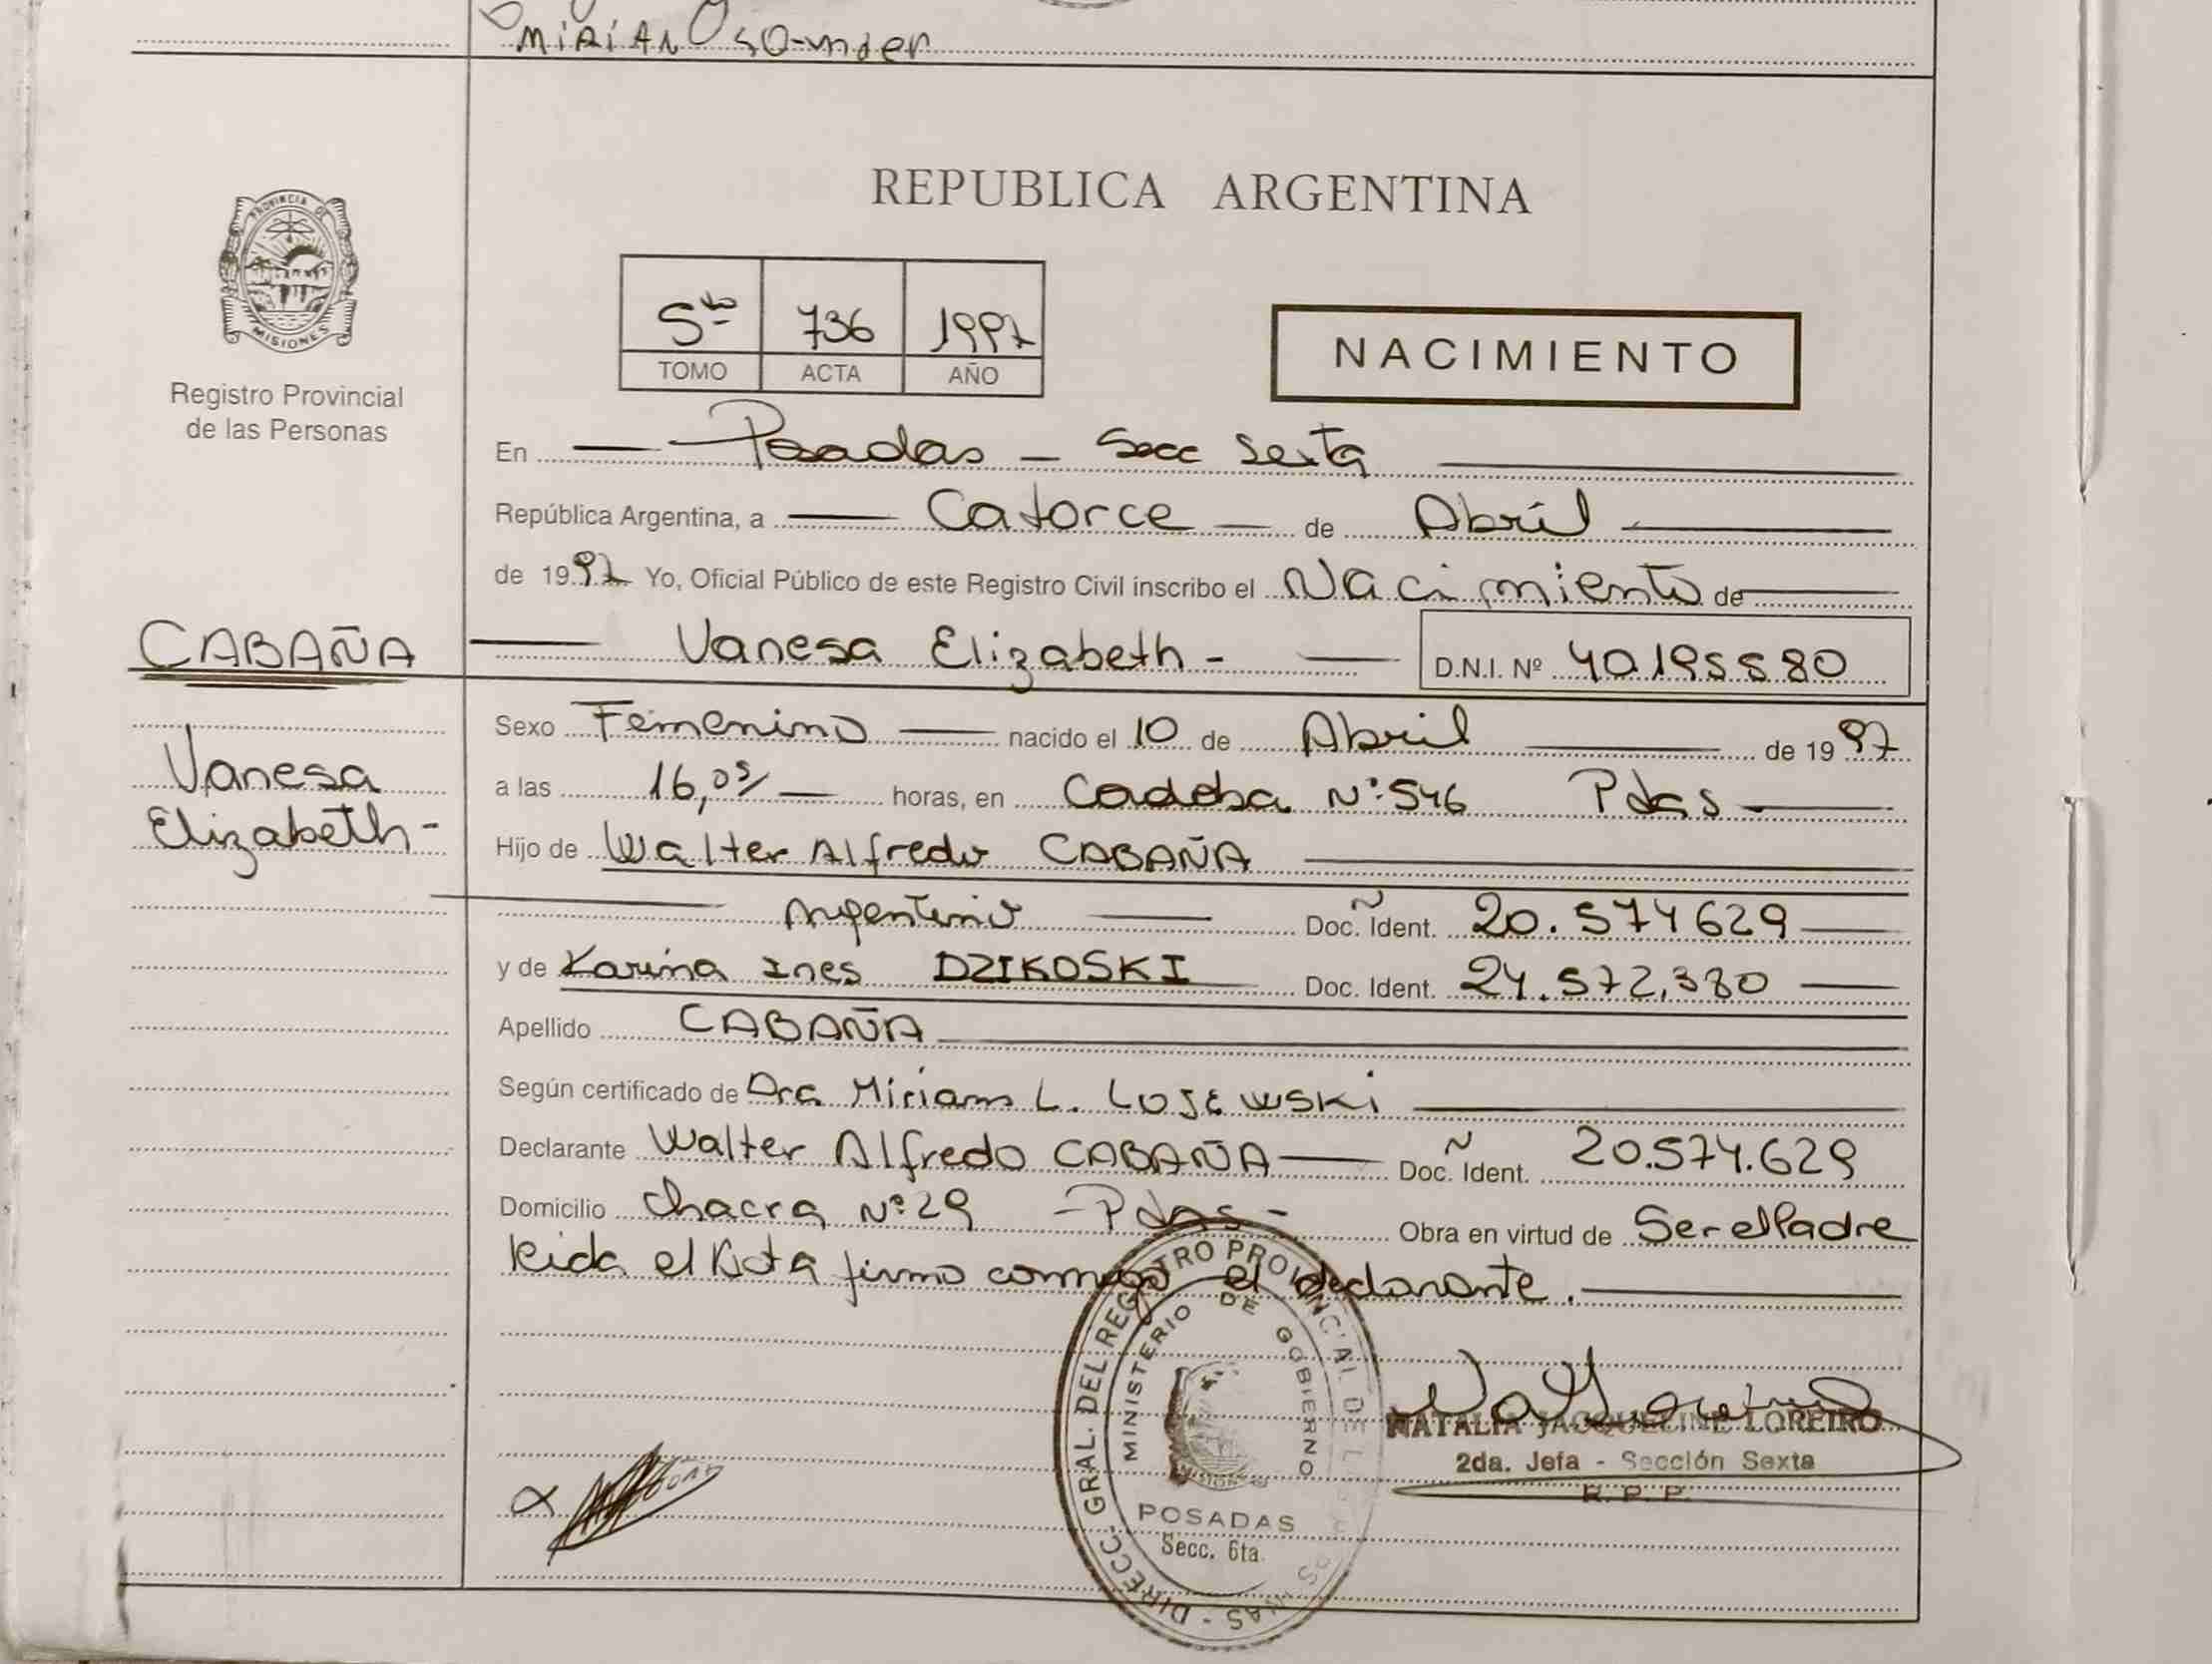 MiRiAN
PROVINCIA DE
MISIONES
Registro Provincial
de las Personas
REPUBLICA ARGENTINA
5to 736 1997
TOMO ACTA AÑO
NACIMIENTO
En Posadas - Secc Sexta
República Argentina, a Catorce de Abril
de 1997 Yo, Oficial Público de este Registro Civil inscribo el Nacimiento de
CABAÑA Vanesa Elizabeth - D.N.I. Nº 40.195580
Sexo Femenino nacido el 10 de Abril de 1997
Vanesa
Elizabeth-
a las 16,05 horas, en Nº 546 Pdas
Hijo de Walter Alfredo CABAÑA
Argentino Doc. Ident. 20.574629
y de Karina Ines DZIKOSKI Doc. Ident. 24.572.380
Apellido CABAÑA
Según certificado de Dra Miriam L. LOJEWSKI
Declarante Walter Alfredo CABAÑA Doc. Ident. 20.574.629
Domicilio Chacra Nº 29 - Pdas - Obra en virtud de Ser el Padre
leida el Acta firmo conmigo el declarante.
DIRECC. GRAL. DEL REGISTRO PROVINCIAL DE
MINISTERIO DE GOBIERNO
POSADAS
Secc. 6ta.
NATALIA JACQUELINE LOREIRO
2da. Jefa - Sección Sexta
R. P. P.